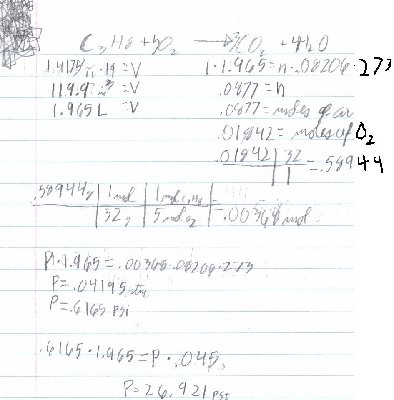 C3H8 + 5O2 → 3CO2 + 4H2O
1.4175² π · 19 = V
119.9 in³ = V
1.965 L = V
1 · 1.965 = n · .08206 · 273
.0877 = n
.0877 = moles of air
.01842 = moles of O2
.01842 | 32 = .58944
1
.58944g | 1 mol | 1 mol C3H8 =
32g | 5 mol O2 .00368 mol
P · 1.965 = .00368 · .08206 · 273
P = .04195 atm
P = .6165 psi
.6165 · 1.965 = P · .045
P = 26.921 psi